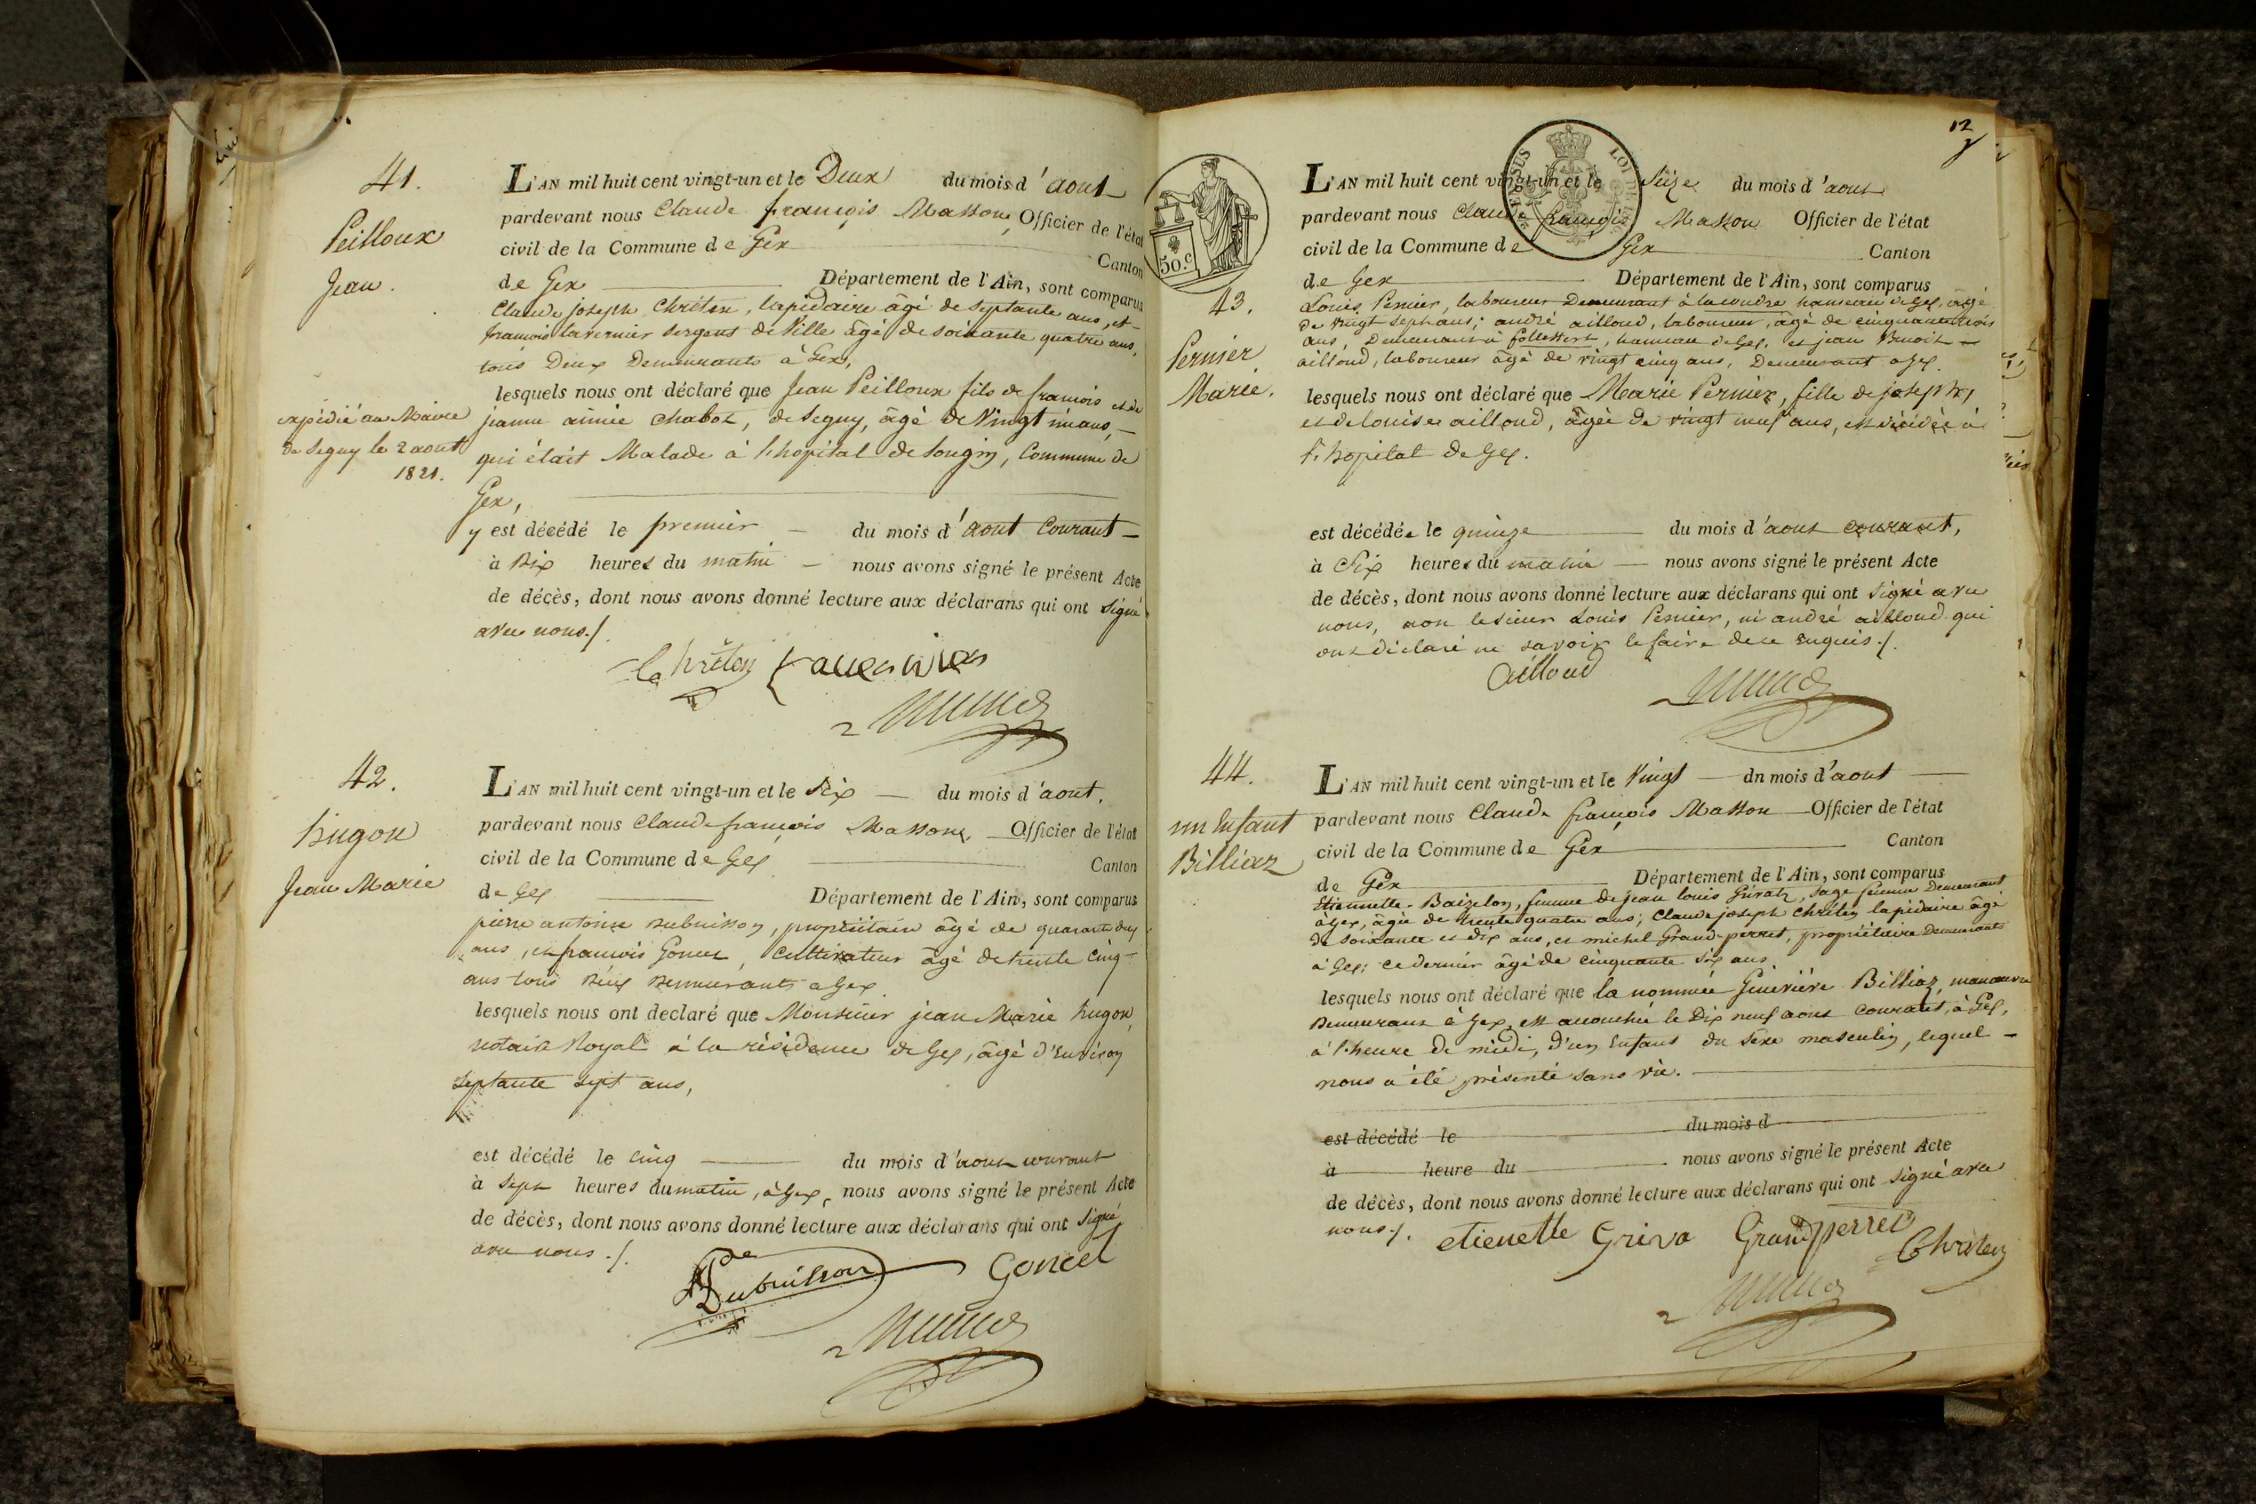 41.
Peilloux
Jean.
expédié au Maire
de Seguy le 2 aout
1821.
L'AN mil huit cent vingt-un et le Deux du mois d'aout
pardevant nous Claude françois Masson, Officier de l'état
civil de la Commune de Gex
Canton
de Gex Département de l'Ain, sont comparus
Claude joseph Chrêten, lapidaire âgé de septante ans, et
francois lavernier sergent de Ville âgé de soixante quatre ans,
tous Deux Demeurants à Gex,
lesquels nous ont déclaré que Jean Peilloux fils de francois et de
jeanne aimée Chabot, de Seguy, âgé de Vingt un ans,
qui était Malade à l'hopital de tougin, Commune de
Gex,
y est décédé le premier du mois d'aout Courant
à Dix heures du matin nous avons signé le présent Acte
de décès, dont nous avons donné lecture aux déclarans qui ont signé
avec nous./.
42.
hugon
Jean Marie
L'AN mil huit cent vingt-un et le Six du mois d'aout.
pardevant nous Claude françois Masson, Officier de l'état
civil de la Commune de Gex
Canton
de Gex Département de l'Ain, sont comparus
pierre antoine Dubuisson, propriétaire âgé de quarante
ans, et francois Goncet, Cultivateur âgé de trente Cinq
ans tous Deux Demeurants a Gex
lesquels nous ont declaré que Monsieur jean Marie hugon,
notaire Royal à la résidence de Gex, âgé d'Environ
Septante Sept ans,
est décédé le Cinq du mois d'aout courant
à Sept heures du matin, à Gex, nous avons signé le présent Acte
de décès, dont nous avons donné lecture aux déclarans qui ont signé
avec nous./.
Dubuisson Goncet
12
50.c
LOI DE
43.
Pernier
Marie.
L'AN mil huit cent vingt-un et le Seize du mois d'aout
pardevant nous Claude françois Masson Officier de l'état
civil de la Commune de Gex Canton
de Gex Département de l'Ain, sont comparus
Louis Pernier, laboureur Demeurant à la coudre hameau de Gex, âgé
de vingt sept ans; andré ailloud, laboureur, âgé de cinquante trois
ans, Demeurant à , hameau de Gex, et jean Benoit
ailloud, laboureur âgé de vingt cinq ans, Demeurant a Gex.
lesquels nous ont déclaré que Marie Pernier, fille de joseph,
et de louise ailloud, âgée de vingt neuf ans, est décédée à
l'hopital de Gex.
est décédée le quinze du mois d'aout courant,
à Six heures du matin nous avons signé le présent Acte
de décès, dont nous avons donné lecture aux déclarans qui ont signé avec
nous, non le sieur Louis Pernier, ni andré ailloud qui
ont déclaré ne savoir le faire de ce Enquis./.
ailloud
44.
un Enfant
Billiaz
L'AN mil huit cent vingt-un et le Vingt dn mois d'aout
pardevant nous Claude françois Masson Officier de l'état
civil de la Commune de Gex Canton
de Gex Département de l'Ain, sont comparus
Etiennette Baizelon, femme de jean louis Grivaz, sage femme Demeurant
à Gex, âgée de trente quatre ans; Claude joseph Chrêten lapidaire âgé
de soixante et dix ans, et michel Grand-perret, propriétaire Demeurants
à Gex; ce dernier âgé de cinquante six ans
lesquels nous ont déclaré que la nommée Geneviève Billiaz, manœuvre
Demeurant à Gex, est accouchée le Dix neuf aout courant, à Gex,
à l'heure de midi, d'un Enfant du sexe masculin, lequel
nous a été présenté sans vie.
est décédé le du mois d
à heure du nous avons signé le présent Acte
de décès, dont nous avons donné lecture aux déclarans qui ont signé avec
nous./.
etienette Griva Grandperret
Chreten